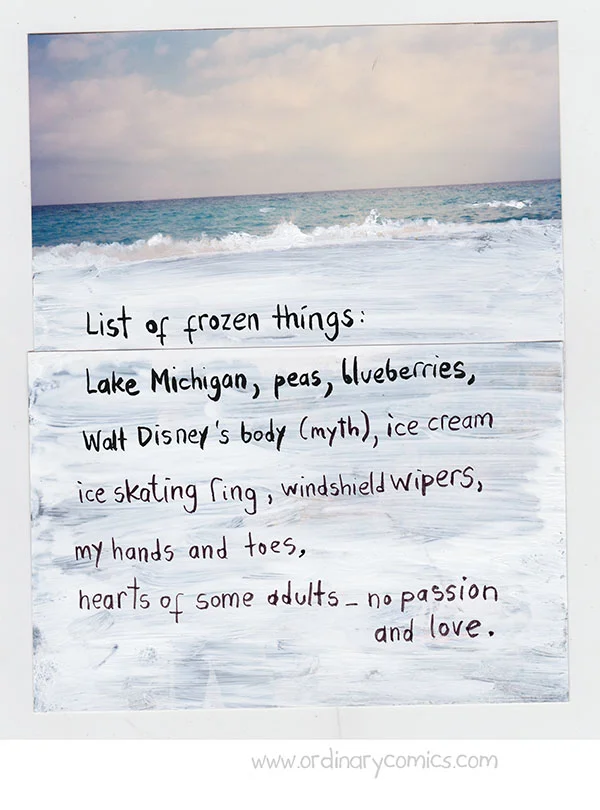 List of frozen things:
Lake Michigan, peas, blueberries,
Walt Disney's body (myth), ice cream
ice skating ring, windshield wipers,
my hands and toes,
hearts of some adults – no passion
and love.
www.ordinarycomics.com